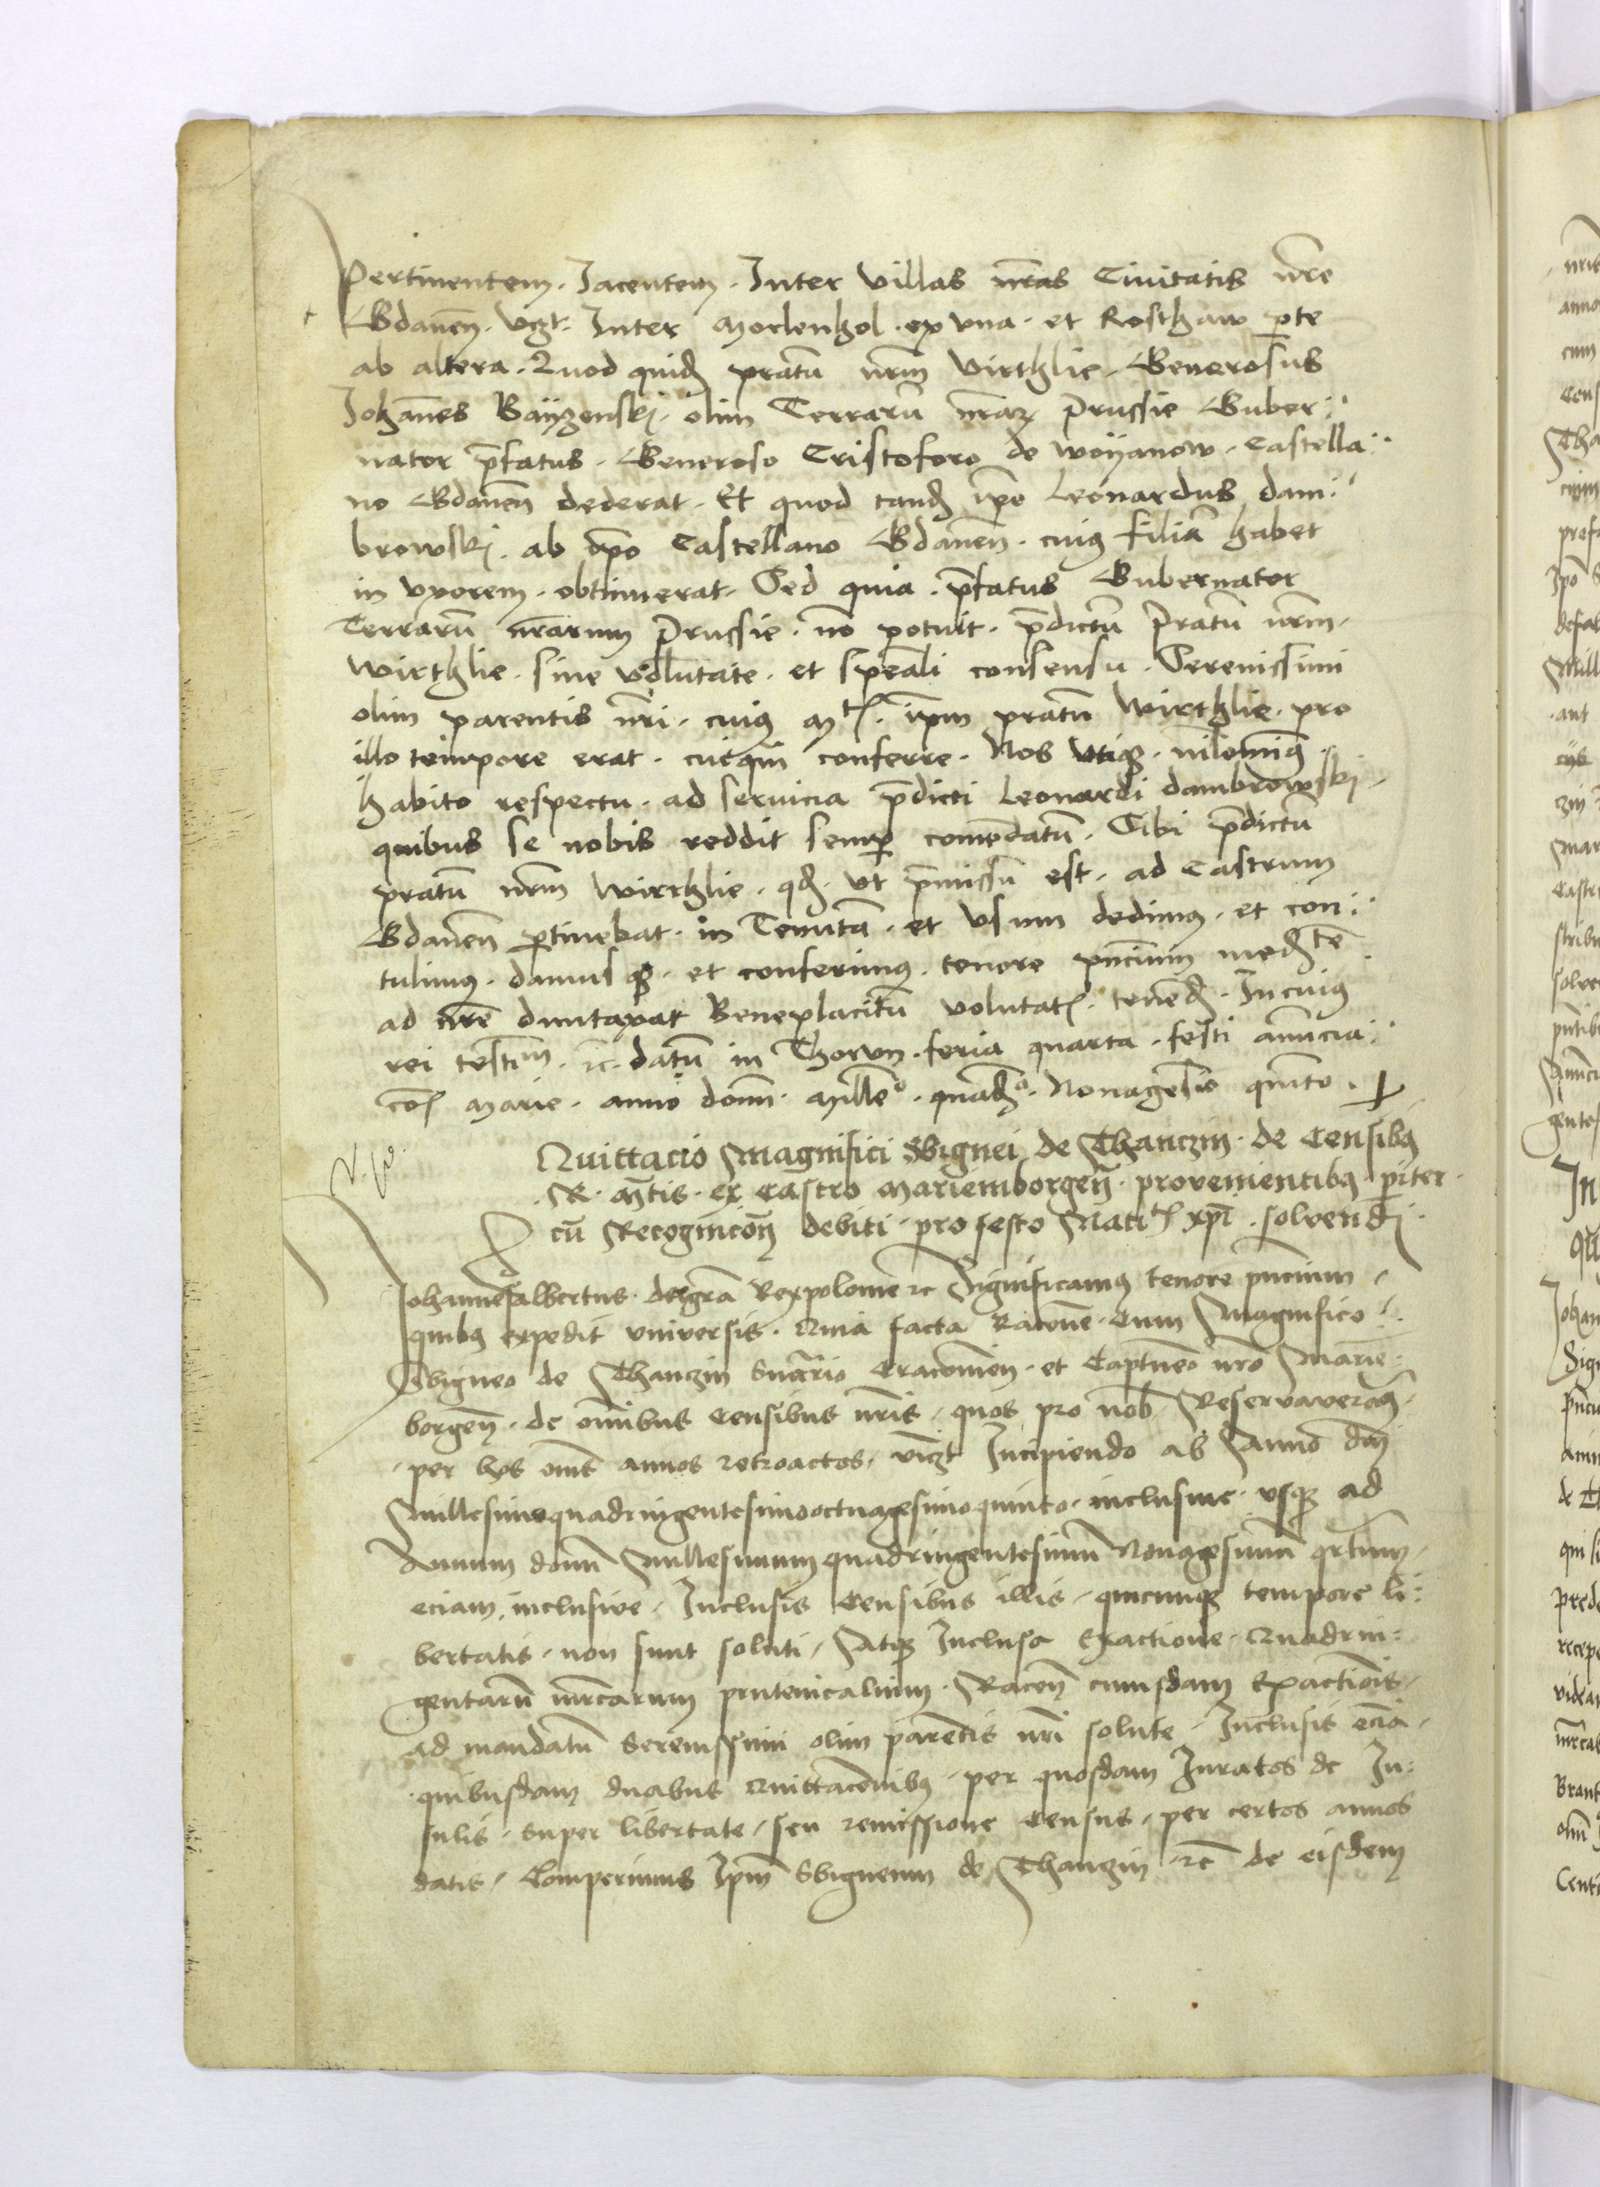 Pertinentem. Jacentem. Inter villas nr̄as Civitatis nr̄e
Gdanen̄. vcz̄t. Inter morlenhol. ex vna. et Rosthaw ꝑte
ab altera. Quod quid̄ pratū nrm̄ virthlie. Generosus
Johānes Bayzensky. olim Terrarū nr̄aꝝ Prussie Guber:
nator p̄fatus. Generoso Cristoforo de woyanow. Castella:
no Gdanen̄ dederat. Et quod tand̄ ip̄e Leonardus dam:
browskj. ab ip̄o Castellano Gdanen̄. cuiꝰ filiā habet
in vxorem. obtinuerat. Sed quia. p̄fatus Gubernator
Terrarū nr̄arum Prussie. nō potuit. p̄dictū Pratū nrm̄.
wirthlie. sine volūtate. et sp̄eali consensu. Serenissimi
olim parentis nr̄i. cuiꝰ mtꝭ. ip̄m pratū wirthlie. pro
illo tempore erat. cuiqm̄ conferre. Nos vtiqꝫ. nilominꝰ
habito respectu. ad seruicia p̄dicti Leonardi dambrowskj.
quibus se nobis reddit semꝑ com̄endatū. Sibi p̄dictū
pratū nrm̄ wirthlie. qd̄. vt p̄missū est. ad Castrum
Gdanen̄ ꝑtinebat. in Tenutā. et vsum dedimꝰ. et con:
tulimꝰ. damusqꝫ. et conferimꝰ. tenore pn̄cium med̄te.
ad nr̄e duntaxat Beneplacitū volūtatꝭ. tenend̄. In cuiꝰ
rei test̄m. ꝛc̄. datū in Thorvn. feria quarta. festi an̄uncia:
cōꝭ marie. anno domī. mill̄eo. quad̄o. Nonagesīo quinto.
Quittacio Magnifici Sbignei de Thanczin. de Censibꝰ
R. M̄tis. ex Castro mariemborgen̄. provenientibꝰ ꝑiter
cū Recognicōn̄ debiti. pro festo Natitꝭ xp̄i. solvendj.
Johannes albertus. dei gr̄a Rex polonie ꝛc Significamꝰ tenore pn̄cium.
quibꝰ expedit vniversis. Quia facta Racōne. Cum Magnifico
Sbigneo de Thanczin Succ̄rio Cracovien̄. et Capt̄neo nr̄o Marie:
borgen̄. de om̄ibus Censibus nr̄is. quos pro nob̄. Reservaveraꝰ.
per hos om̄s annos retroactos. vicz̄t Incipiendo ab Anno dn̄j
Millesimoquadringentesimooctuagesimoquinto. inclusiue. vsqꝫ ad
Annum domī Millesimumquadringentesimū Nonagesimū qrtum.
eciam inclusive. Inclusis Censibus illis. quicunqꝫ tempore li:
bertatis. non sunt soluti. Atqꝫ Inclusa Exactione. Quadrin:
gentarū mrcarum prutenicalium. Racōn̄ cuiusdam Exactiōis.
ad mandatū Serenissimi olim parētis nr̄i solute. Inclusis eciā.
quibusdam duabus Quittacōnibꝰ. per quosdam Iuratos de In:
sulis. super libertate. seu remissione Census. per certos annos
datis. Comperimus Ip̄m Sbigneum de Thanczin ꝛc̄ de eisdem